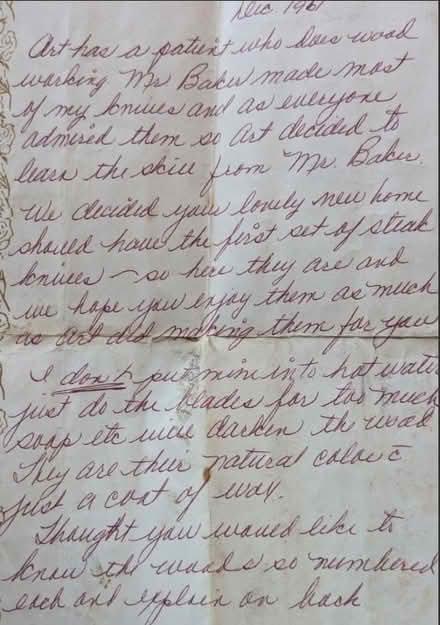 Dec. 1961
Art has a patient who does wood
working Mr Baker made most
of my knives and as everyone
admired them so Art decided to
learn the skill from Mr. Baker.
We decided your lovely new home
should have the first set of steak
knives – so here they are and
we hope you enjoy them as much
as Art did making them for you
I don't put mine into hot water
just do the blades for too much
soap etc will darken the wood
They are their natural color c̄
just a coat of wax.
Thought you would like to
know the woods so numbered
each and explain on back